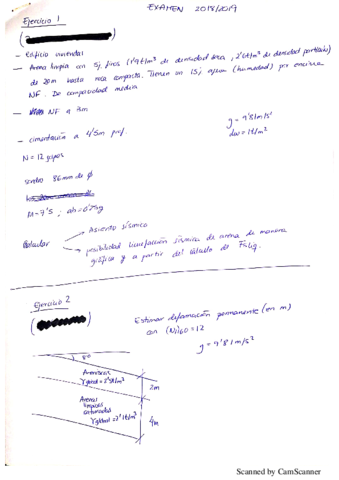 EXAMEN 2018/2019
Ejercicio 1
- Edificio viviendas
- Arena limpia con 5% finos (1'9t/m³ de densidad seca, 2'6t/m³ de densidad partículas)
de 20m hasta roca compacta. Tienen un 15% de (humedad) por encima
NF. De compacidad media
- NF a 7m
- cimentación a 4'5m prf.
N=12 golpes
sondeo 86mm de Ø
M=7'5 ; ab=0'25g
g=9'81m/s²
dw=1t/m³
Calcular
Asiento sísmico
posibilidad licuefacción sísmica de arena de manera
gráfica y a partir del cálculo de Fsliq.
Ejercicio 2
Estimar deformación permanente (en m)
con (N1)60=12
g=9'81m/s²
8º
Areniscas
2m
Arenas
limpias
saturadas
4m
Scanned by CamScanner